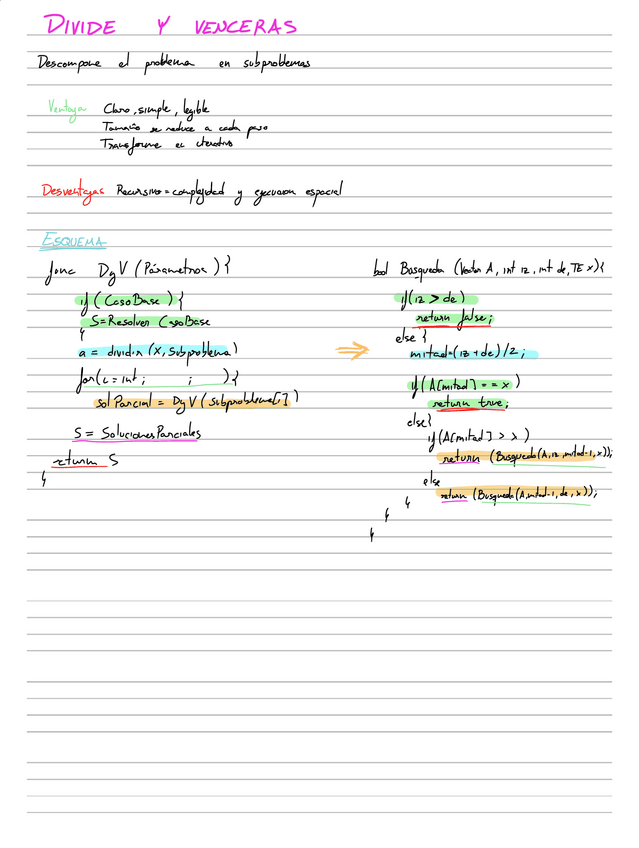 DIVIDE Y VENCERAS
Descompone el problema en subproblemas
Ventaja Claro, simple, legible
Tamaño se reduce a cada paso
Transforme en iterativo
Desventajas Recursivo = complejidad y ejecucion espacial
ESQUEMA
func DyV (Párametros) {
if (CasoBase) {
S=Resolver CasoBase
}
a = dividir (X, Subproblema)
for(i=int; ; ) {
sol Parcial = DyV (Subproblema[i])
S = Soluciones Parciales
return S
}
bool Busqueda (Vector A, int iz, int de, TE x){
if(iz > de)
return false;
else {
mitad=(iz+de)/2;
if(A[mitad] == x)
return true;
else{
if(A[mitad] > x)
return (Busqueda(A, iz, mitad-1, x));
else
return (Busqueda(A, mitad-1, de, x));
}
}
}